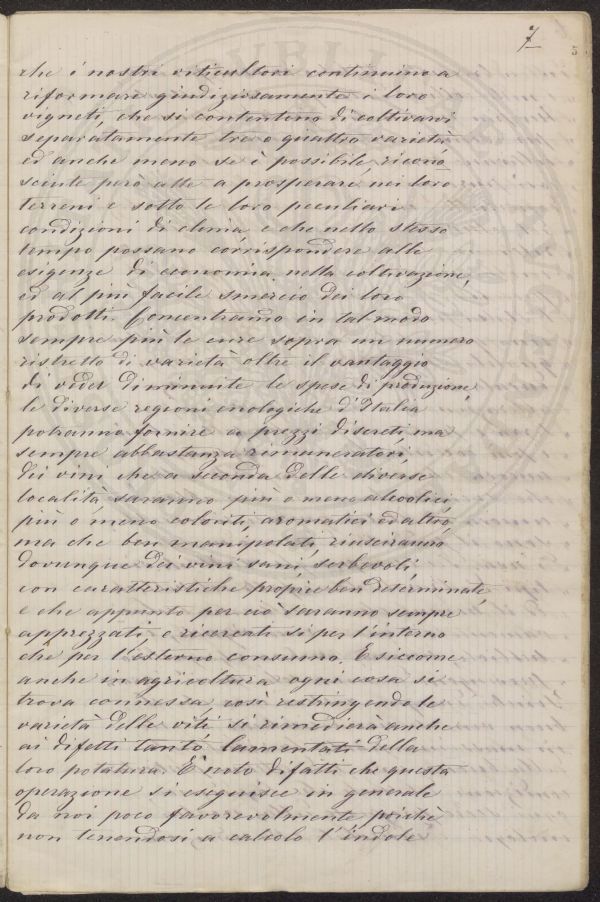 7
5
che i nostri viticultori continuino a
riformare giudiziosamente i loro
vigneti, che si contentino di coltivarvi
separatamente tre o quattro varietà,
ed anche meno se è possibile, ricono
sciute però atte a prosperare nei loro
terreni e sotto le loro peculiari
condizioni di clima, e che nello stesso
tempo possano corrispondere alle
esigenze di economia nella coltivazione,
ed al più facile smercio dei loro
prodotti. Concentrando in tal modo
sempre più le cure sopra un numero
ristretto di varietà oltre il vantaggio
di veder diminuite le spese di produzione,
le diverse regioni enologiche d'Italia
potranno fornire a prezzi discreti, ma
sempre abbastanza rimuneratori,
dei vini che a seconda delle diverse
località, saranno più o meno alcoolici,
più o meno coloriti, aromatici ed altro,
ma che ben manipolati, riusciranno
dovunque dei vini sani, serbevoli,
con caratteristiche proprie ben determinate,
e che appunto per ciò saranno sempre
apprezzati, e ricercati sì per l'interno
che per l'esterno consumo. E siccome
anche in agricoltura ogni cosa si
trova connessa così restringendo le
varietà delle viti si rimedierà anche
ai difetti tanto lamentati della
loro potatura. È noto difatti che questa
operazione si eseguisce in generale
da noi poco favorevolmente poichè
non tenendosi a calcolo l'indole